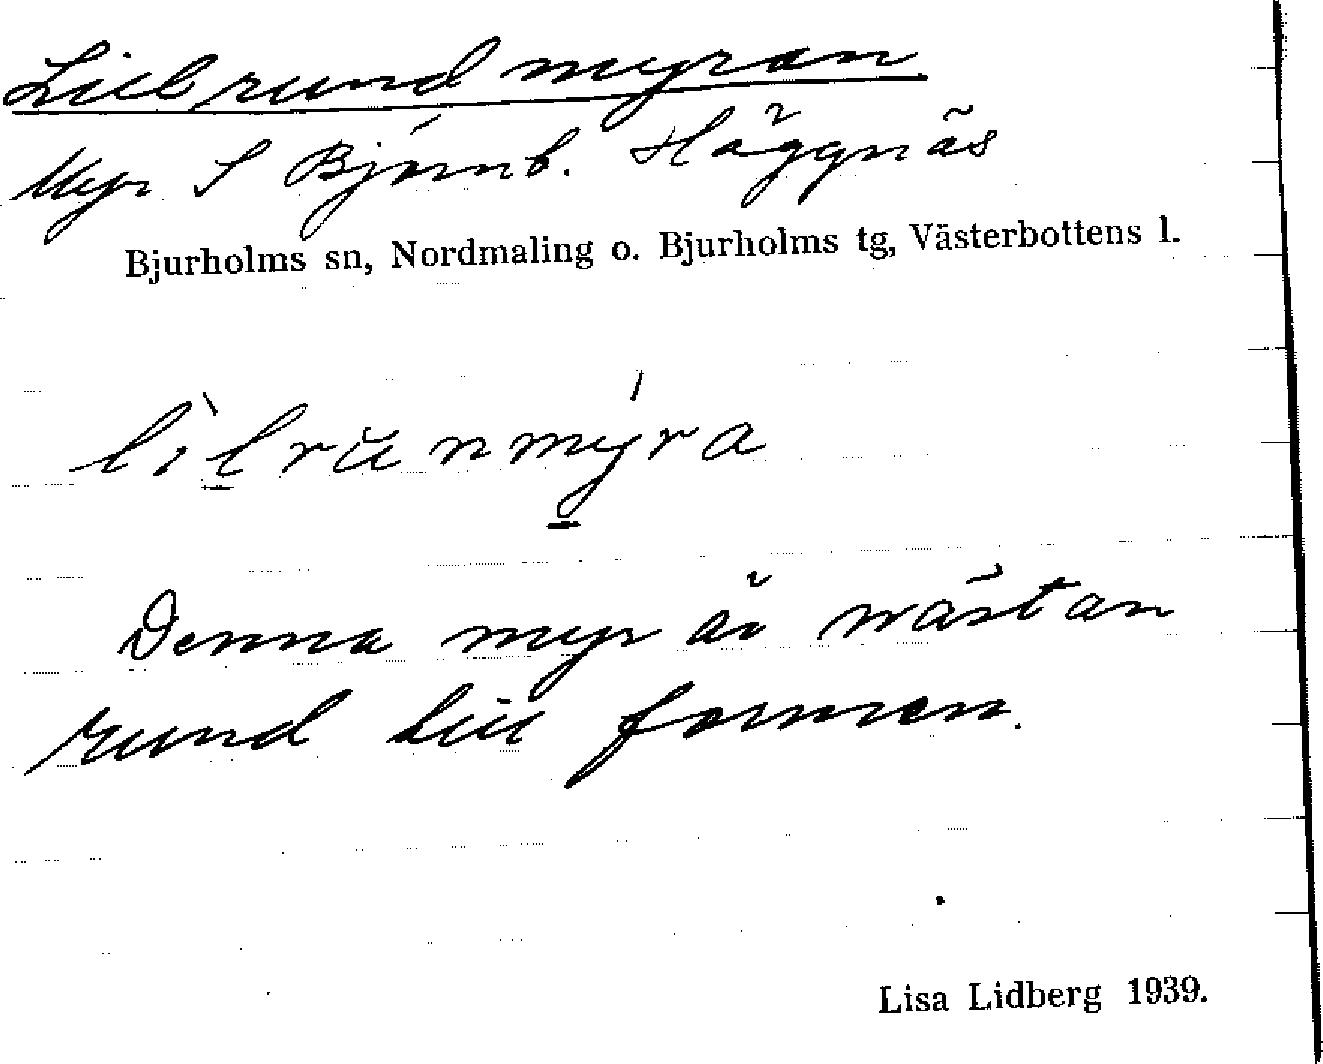 Lillrundmyran
Myr S Björnb. Häggnäs
Bjurholms sn, Nordmaling o. Bjurholms tg, Västerbottens l.
lìlrŭnmýra
Denna myr är nästan
rund till formen.
Lisa Lidberg 1939.